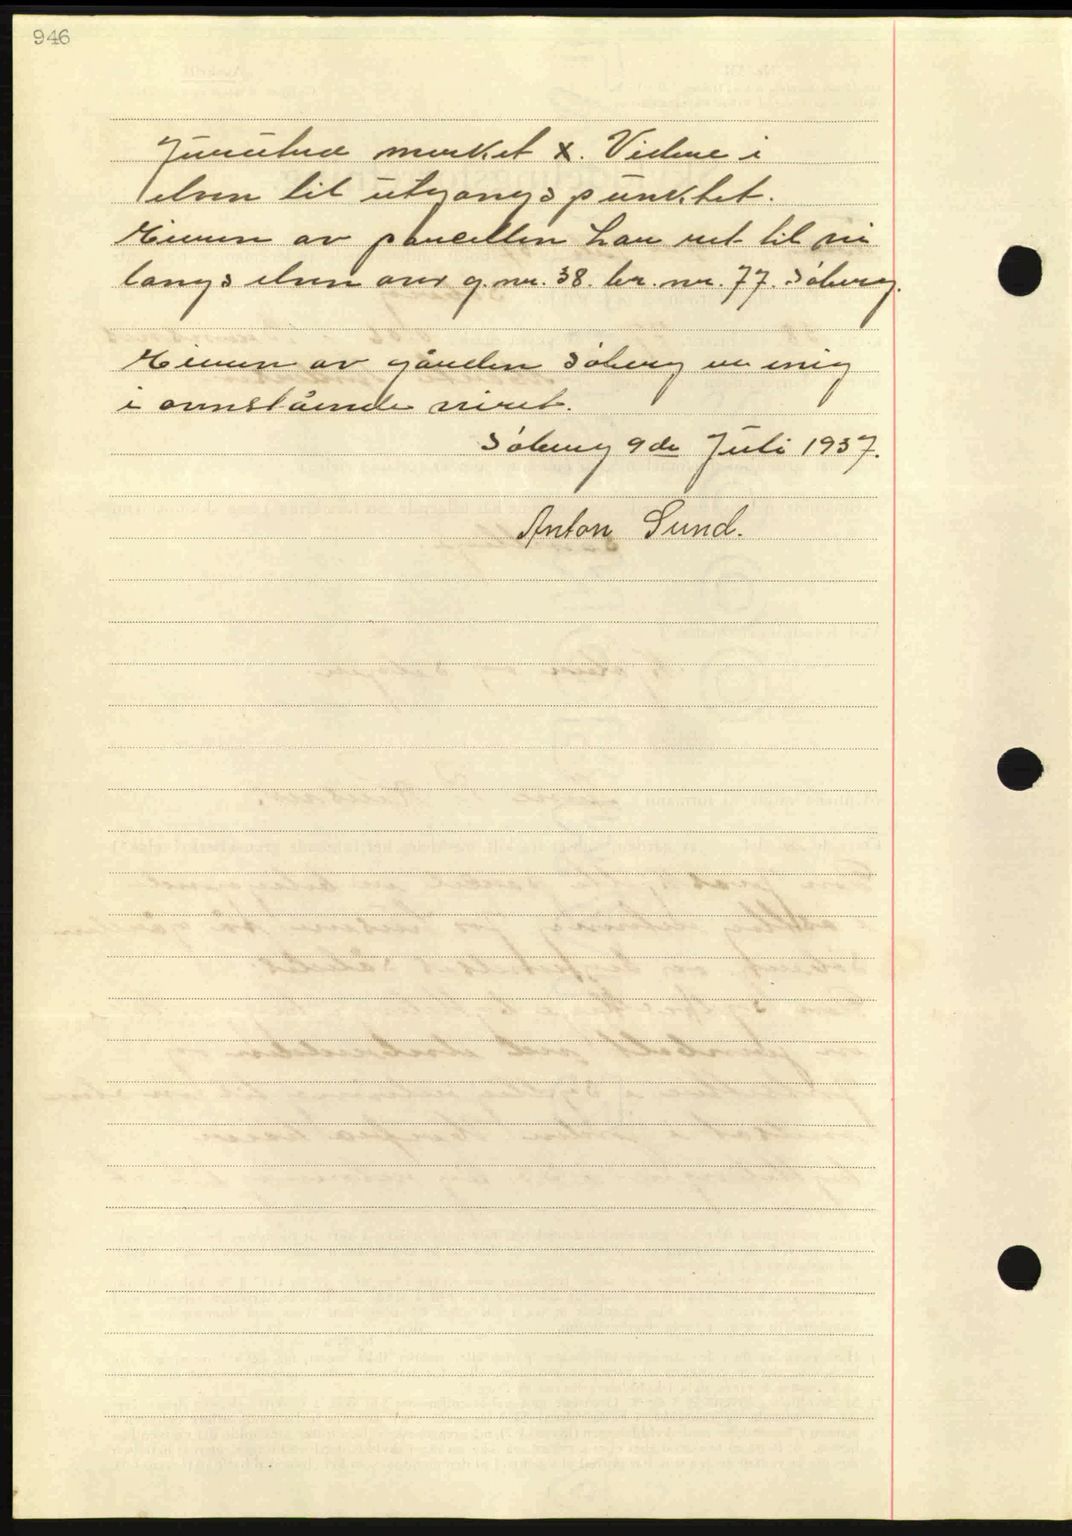 946
furutre merket X. Videre i
elven til utgangspunktet.
Eieren av parcellen har ret til vei
langs elven over g. nr. 38. br. nr. 77. Søberg.
Eieren av gården Søberg er enig
i ovenstående
Søberg 9de Juli 1937.
Anton Sund.